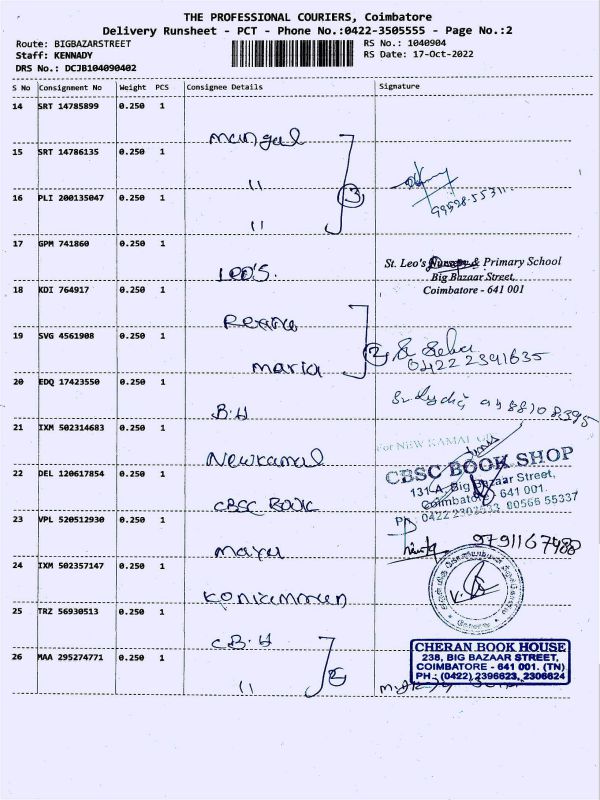 THE PROFESSIONAL COURIERS, Coimbatore
Delivery Runsheet - PCT - Phone No.:0422-3505555 - Page No.:2
Route: BIGBAZARSTREET
RS No.: 1040904
Staff: KENNADY
RS Date: 17-Oct-2022
DRS No.: DCJB104090402
S No Consignment No Weight PCS Consignee Details Signature
14 SRT 14785899 0.250 1
Mangal
15 SRT 14786135 0.250 1
"
16 PLI 200135047 0.250 1
3
"
17 GPM 741860 0.250 1
LEO'S.
St. Leo's Nursery & Primary School
Big Bazaar Street,
Coimbatore - 641 001
18 KDI 764917 0.250 1
19 SVG 4561908 0.250 1
2
maria
0422 2391635
20 EDQ 17423550 0.250 1
B.H
21 IXM 502314683 0.250 1
For NEW KAMAL
Newkamal
22 DEL 120617854 0.250 1
CBSC BOOK
CBSC BOOK SHOP
131-A, Big Bazaar Street,
Coimbatore 641 001.
80566 55337
23 VPL 520512930 0.250 1
9791167988
24 IXM 502357147 0.250 1
25 TRZ 56930513 0.250 1
C.B.H
26 MAA 295274771 0.250 1
"
2
CHERAN BOOK HOUSE
238, BIG BAZAAR STREET,
COIMBATORE - 641 001. (TN)
PH.: (0422) 2396623, 2306624